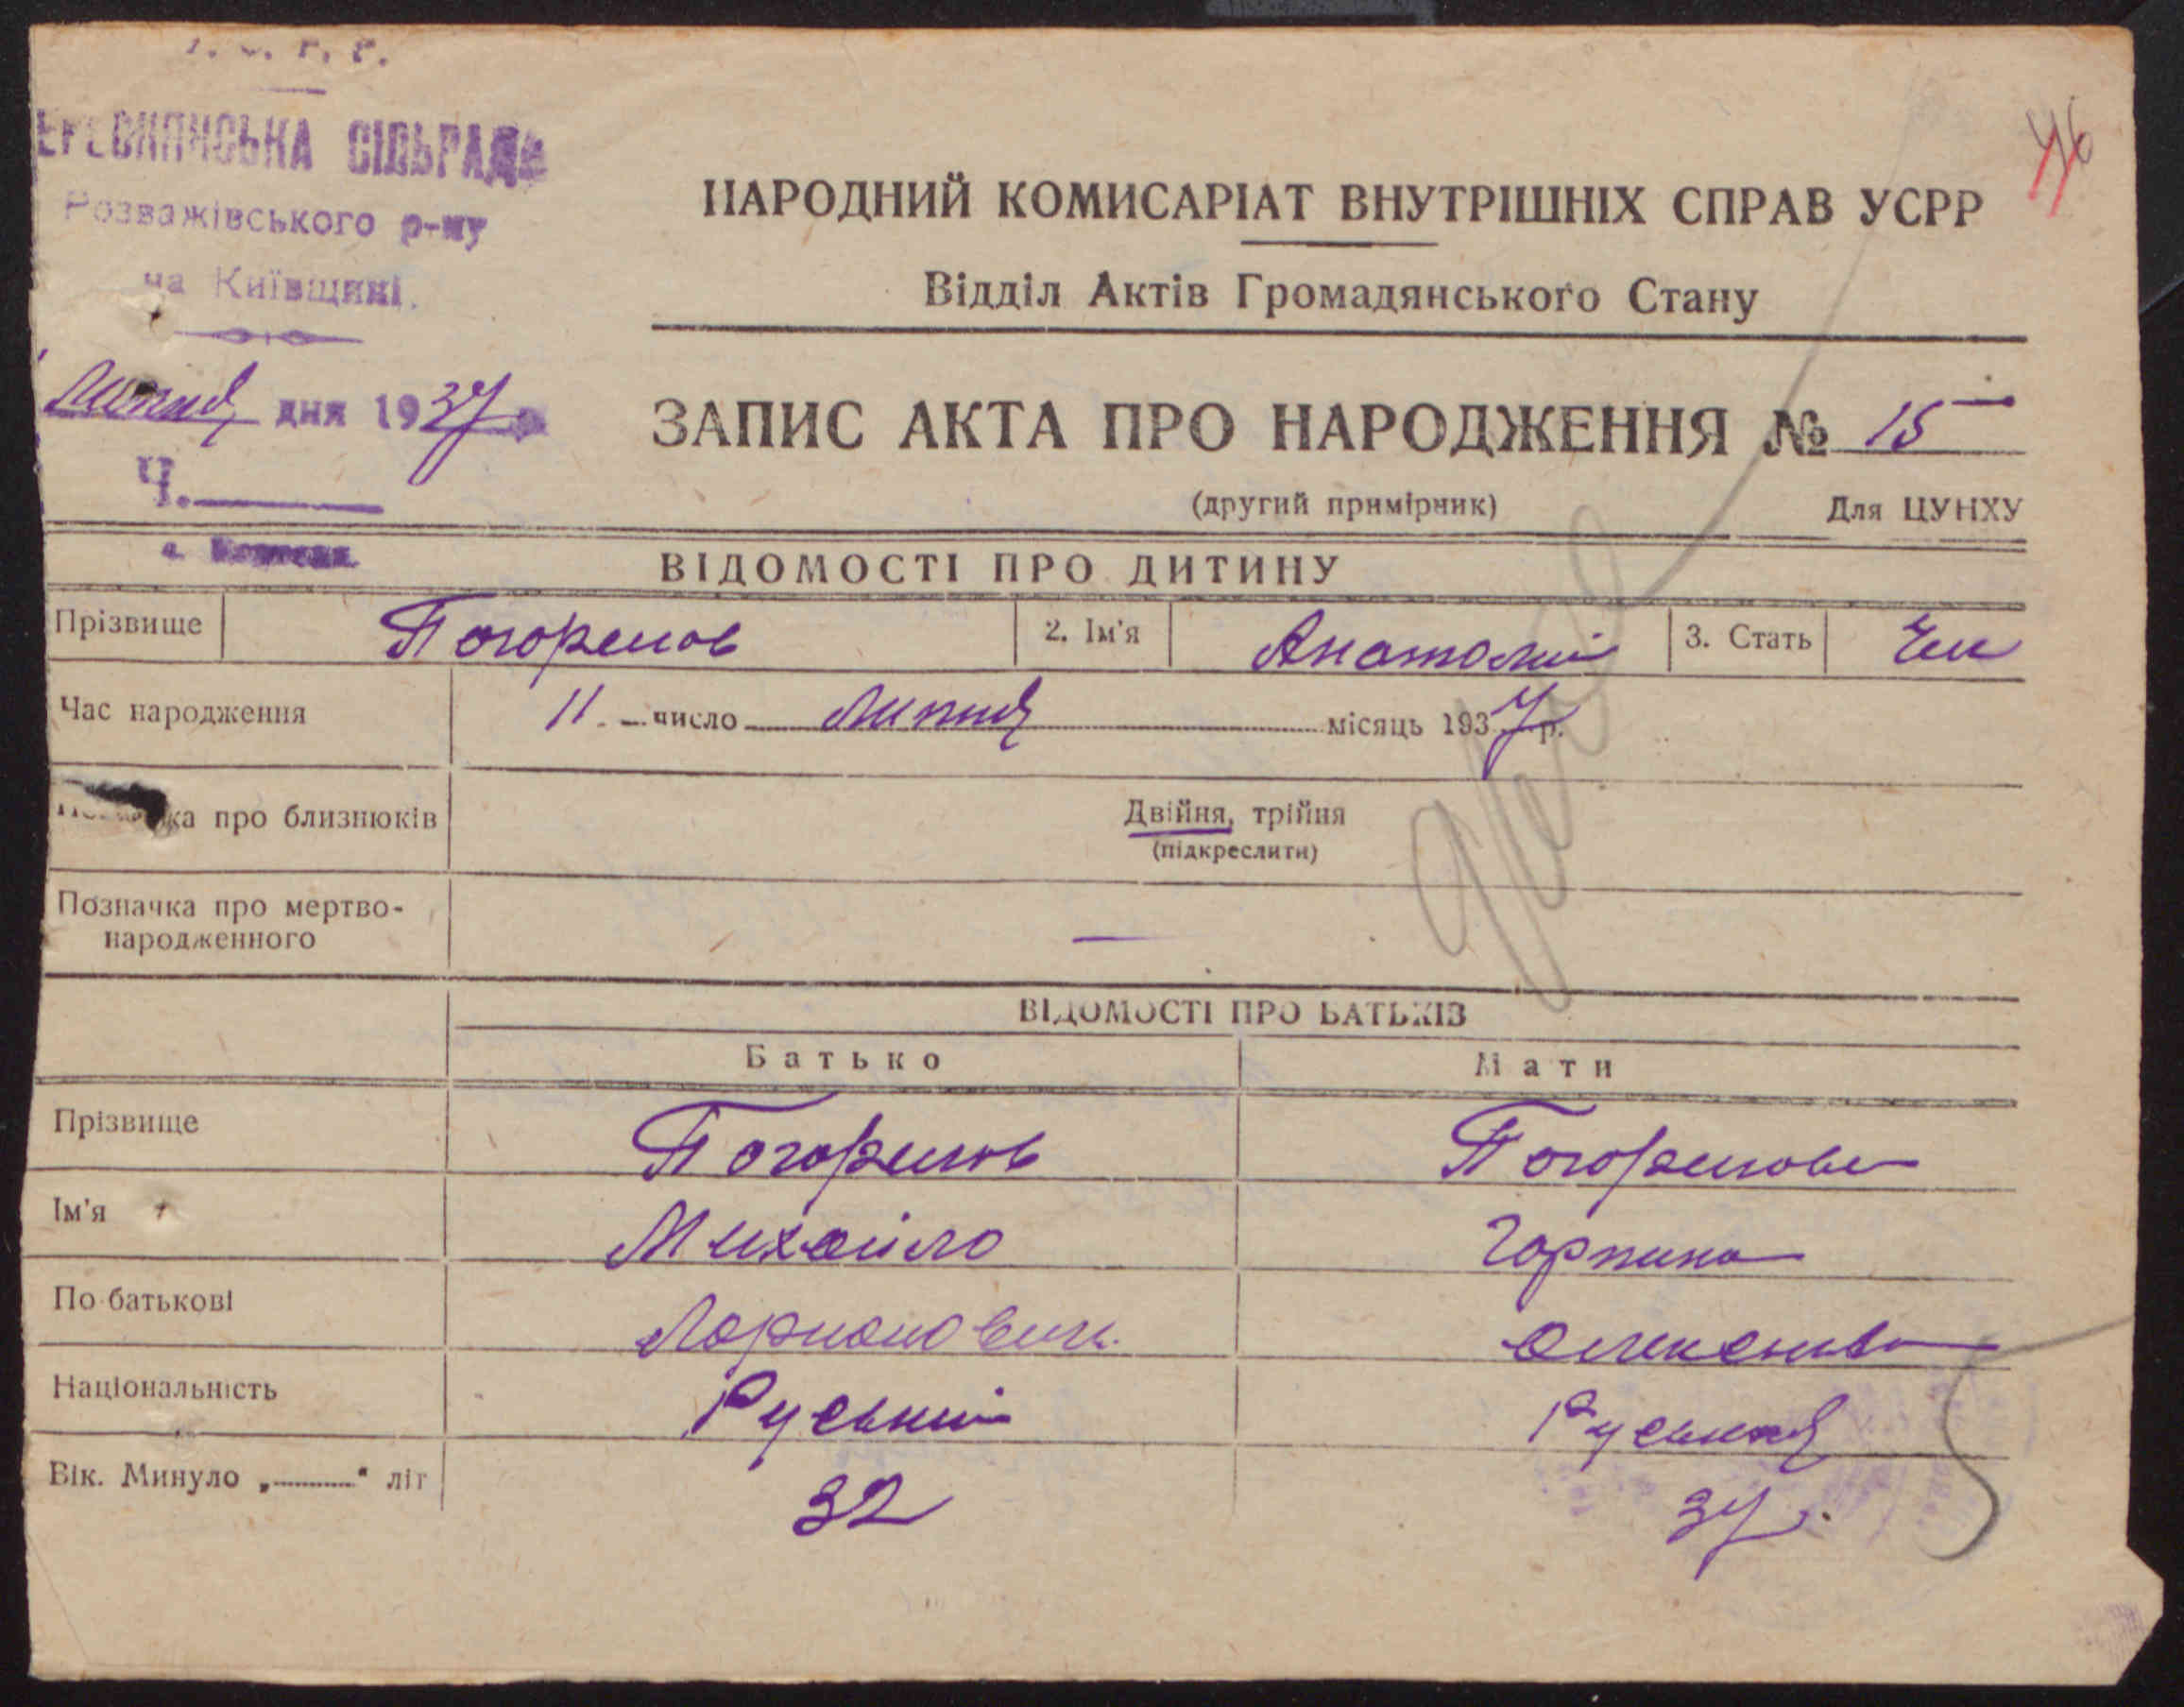 ЕРЕСИПИСЬКА СІЛЬРАДА
Розважівського р-ну
на Київщині.
Липня дня 1937
Ч.
46
НАРОДНИЙ КОМИСАРІАТ ВНУТРІШНІХ СПРАВ УСРР
Відділ Актів Громадянського Стану
ЗАПИС АКТА ПРО НАРОДЖЕННЯ № 15
(другий примірник) Для ЦУНХУ
ВІДОМОСТІ ПРО ДИТИНУ
Прізвище Погорелов 2. Ім'я Анатолій 3. Стать Чол
Час народження 11 число Липня місяць 1937 р.
ка про близнюків Двійня, трійня
(підкреслити)
Позначка про мертво-
народженного —
ВІДОМОСТІ ПРО БАТЬКІВ
Батько Мати
Прізвище Погорелов Погорелова
Ім'я Михайло Горпина
По батькові
Національність Руський Руська
Вік. Минуло „ " літ 32 37